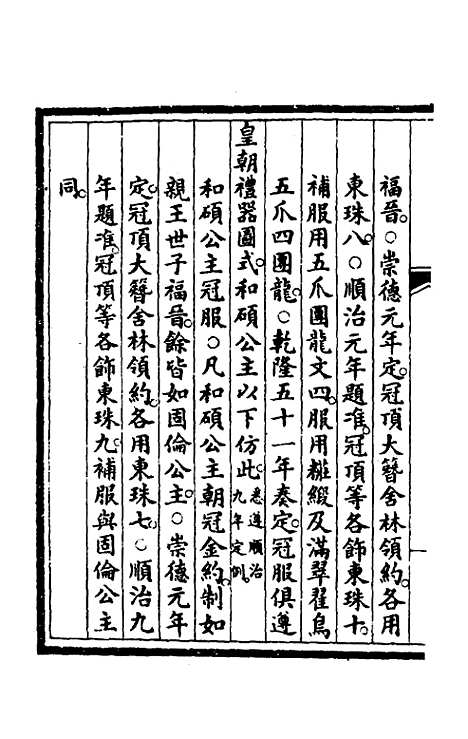 福晉。○崇德元年定。冠頂大簪舍林領約。各用
東珠八。○順治元年題准。冠頂等各飾東珠十。
補服用五爪團龍文四。服用糚緞及滿翠翟鳥
五爪四團龍。○乾隆五十一年奏定。冠服俱遵
皇朝禮器圖式。和碩公主以下仿此。悉遵順治九年定例。
和碩公主冠服。○凡和碩公主朝冠金約。制如
親王世子福晉。餘皆如固倫公主。○崇德元年
定。冠頂大簪舍林領約。各用東珠七。○順治九
年題准。冠頂等各飾東珠九。補服與固倫公主
同。